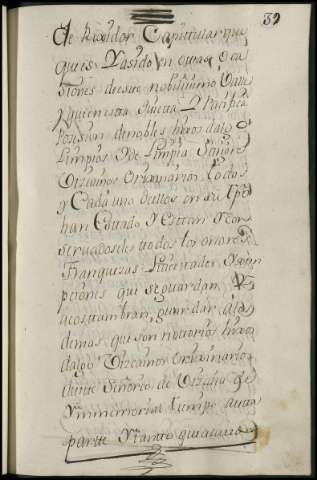 89
de Rexidor Capitular que
que es y a sido en otras oca
siones de este nobilissimo Valle
y quieta y Pacifica
Posesion de nobles hixos dalgo
Limpios y de Limpia Sangre
Vizcainos orixinarios todos
y Cada uno de ellos en su tpo
han Estado y Estan y Con
servadoseles todos los onores
Franquezas Livertades y exem
pciones que se guardan y
acostumbran guardar a los
demas que son nottorios hixos
dalgo Vizcainos orixinarios
de este Señorio de Vizcaia de
Ynmemorial tiempo a esta
partte Ytanto que a